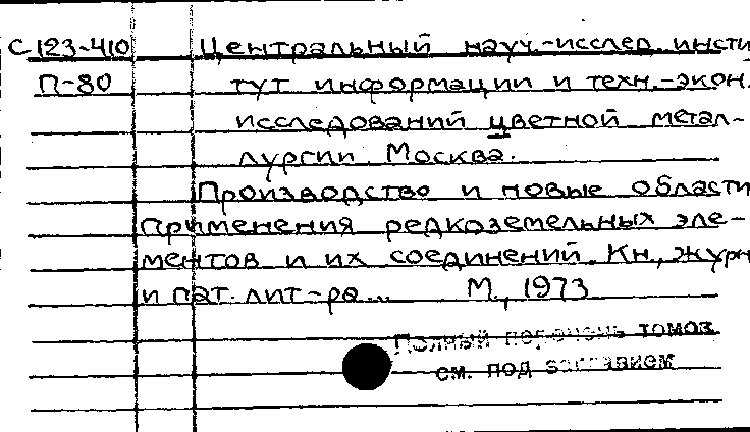 С 123-410 Центральный науч.-исслед. инсти
П-80 тут информации и техн.-экон.
исследований цветной метал-
лургии. Москва.
Производство и новые области
применения редкоземельных эле-
ментов и их соединений. Кн., журн
и пат. лит-ра... М., 1973
Полный перечень томов
см. под заглавием